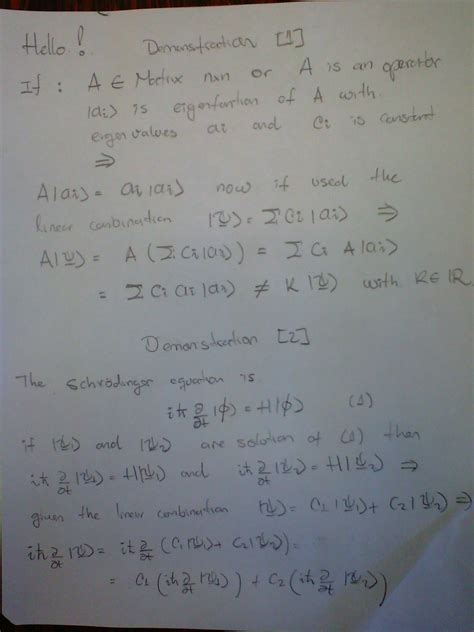 Hello! Demonstraction [1]
If : A ∈ Matrix nxn or A is an operator
|ai⟩ is eigenfuntion of A with
eigenvalues ai and ci is constant
⇒
A|ai⟩ = ai|ai⟩ now if used the
linear combination |ψ⟩ = Σ ci|ai⟩ ⇒
A|ψ⟩ = A (Σ ci|ai⟩) = Σ ci A|ai⟩
= Σ ci ai|ai⟩ ≠ K|ψ⟩ with K∈ℝ.
Demonstraction [2]
The schrödinger equation is
iħ ∂/∂t |ϕ⟩ = H|ϕ⟩ (1)
if |ψ1⟩ and |ψ2⟩ are solution of (1) then
iħ ∂/∂t |ψ1⟩ = H|ψ1⟩ and iħ ∂/∂t |ψ2⟩ = H|ψ2⟩ ⇒
given the linear combination |ψ⟩ = C1|ψ1⟩ + C2|ψ2⟩ ⇒
iħ ∂/∂t |ψ⟩ = iħ ∂/∂t (C1|ψ1⟩ + C2|ψ2⟩) =
= C1 (iħ ∂/∂t |ψ1⟩) + C2 (iħ ∂/∂t |ψ2⟩)